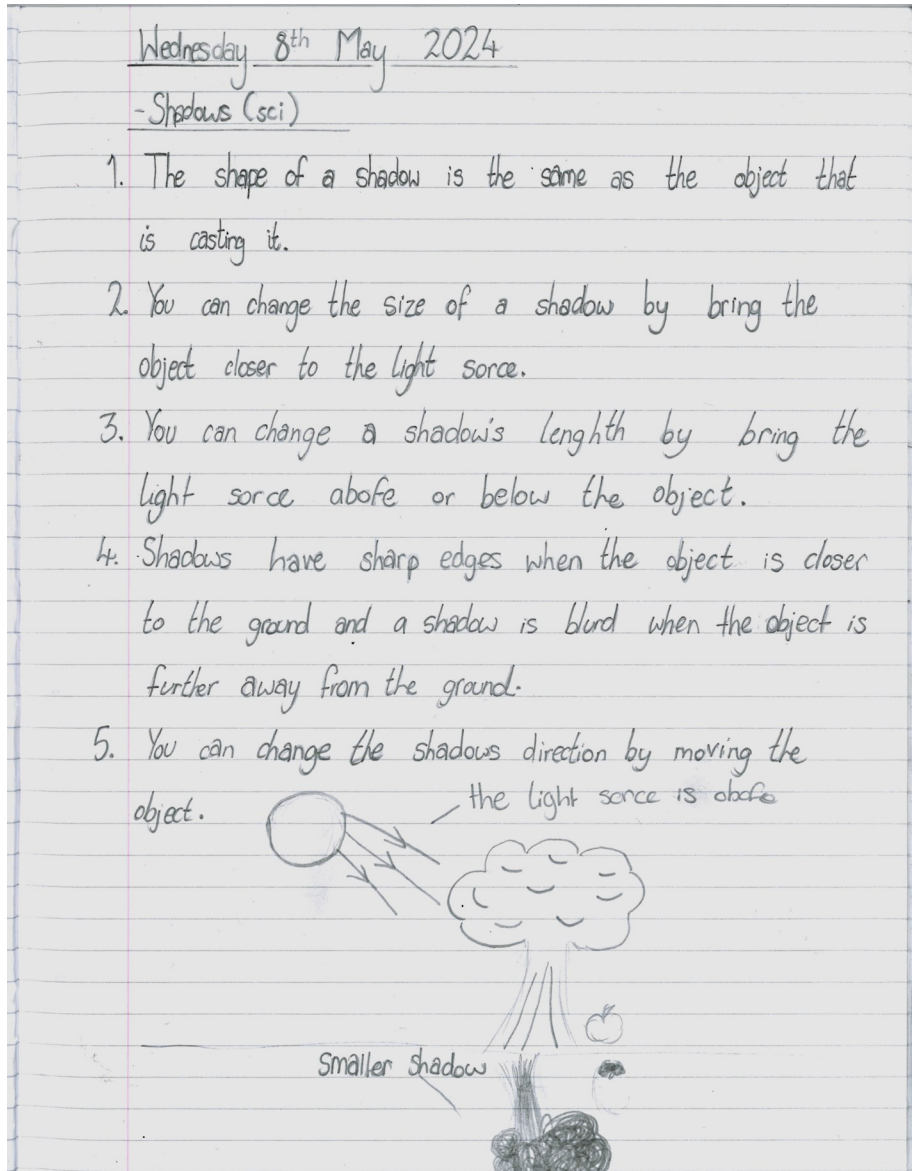 Wednesday 8th May 2024
- Shadows (sci)
1. The shape of a shadow is the same as the object that
is casting it.
2. You can change the size of a shadow by bring the
object closer to the light sorce.
3. You can change a shadow's lenghth by bring the
light sorce abofe or below the object.
4. Shadows have sharp edges when the object is closer
to the ground and a shadow is blurd when the object is
further away from the ground.
5. You can change the shadows direction by moving the
object.
the light sorce is abofe
Smaller shadow